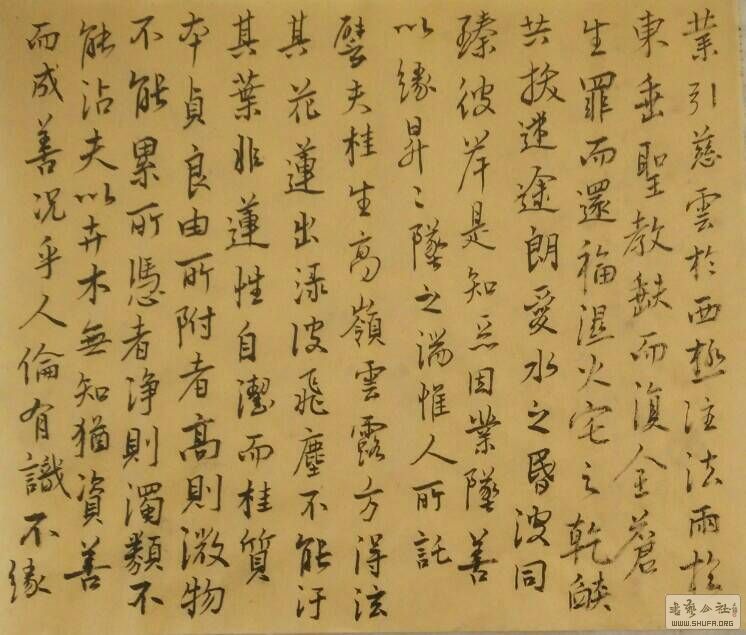 業引慈雲於西極注法雨於
東垂聖教缺而復全蒼
生罪而還福濕火宅之乾燄
共拔迷途朗愛水之昏波同
臻彼岸是知惡因業墜善
以緣昇〻墜之端惟人所託
譬夫桂生高嶺雲露方得泫
其花蓮出淥波飛塵不能汙
其葉非蓮性自潔而桂質
本貞良由所附者高則微物
不能累所憑者淨則濁類不
能沾夫以卉木無知猶資善
而成善況乎人倫有識不緣
書藝公社
WWW.SHUFA.ORG